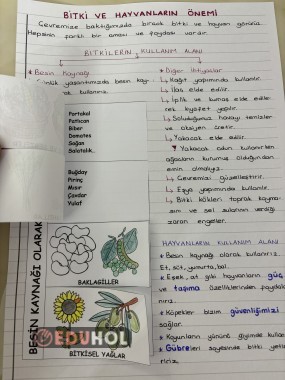 BİTKİ VE HAYVANLARIN ÖNEMİ
Çevremize baktığımızda birçok bitki ve hayvan görürüz.
Hepsinin farklı bir amacı ve faydası vardır.
BİTKİLERİN KULLANIM ALANI
* Besin Kaynağı
Günlük yaşantımızda besin kay-
olarak kullanırız.
Portakal
Patlıcan
Biber
Domates
Soğan
Salatalık
Buğday
Pirinç
Mısır
Çavdar
Yulaf
BESİN KAYNAĞI OLARAK
BAKLAGİLLER
BİTKİSEL YAĞLAR
EDUHOL
* Diğer İhtiyaçlar
Kağıt yapımında kullanılır.
İlaç elde edilir.
İplik ve kumaş elde edile-
rek kıyafet yapılır.
Soluduğumuz havayı temizler
ve oksijen üretir.
Yakacak elde edilir.
Yakacak odun kullanırken
ağaçların kurumuş olduğundan
emin olmalıyız.
Çevremizi güzelleştirir.
Eşya yapımında kullanılır.
Bitki kökleri toprak kayma-
sını ve sel sularının verdiği
zararı engeller.
HAYVANLARIN KULLANIM ALANI
* Besin kaynağı olarak kullanırız.
Et, süt, yumurta, bal.
* Eşek, at gibi hayvanların güç
ve taşıma özelliklerinden faydala-
nırız.
* Köpekler bizim güvenliğimizi
sağlar.
* Koyunların yününü giyimde kullan
* Gübreleri sayesinde bitki yetiş-
tiririz.